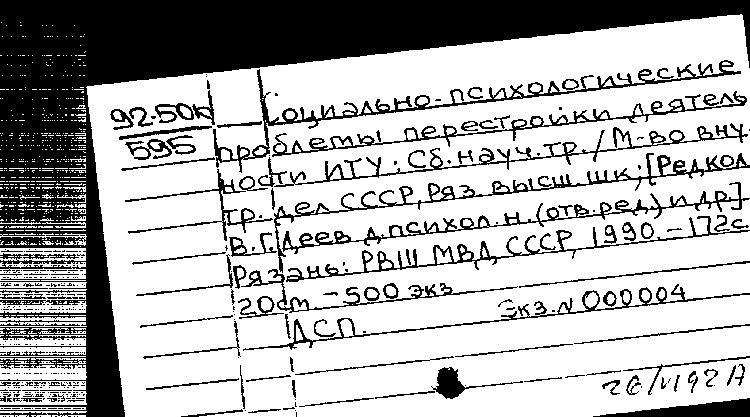 92-50к Социально-психологические
595 проблемы перестройки деятель
ности ИТУ: Сб. науч. тр. / М-во вну
тр. дел СССР, Ряз. высш. шк; [Редкол
В. Г. Деев д. психол. н. (отв. ред) и др]
Рязань: РВШ МВД СССР, 1990. - 172с
20см - 500 экз
ДСП. Экз. N 000004
26/VI 92